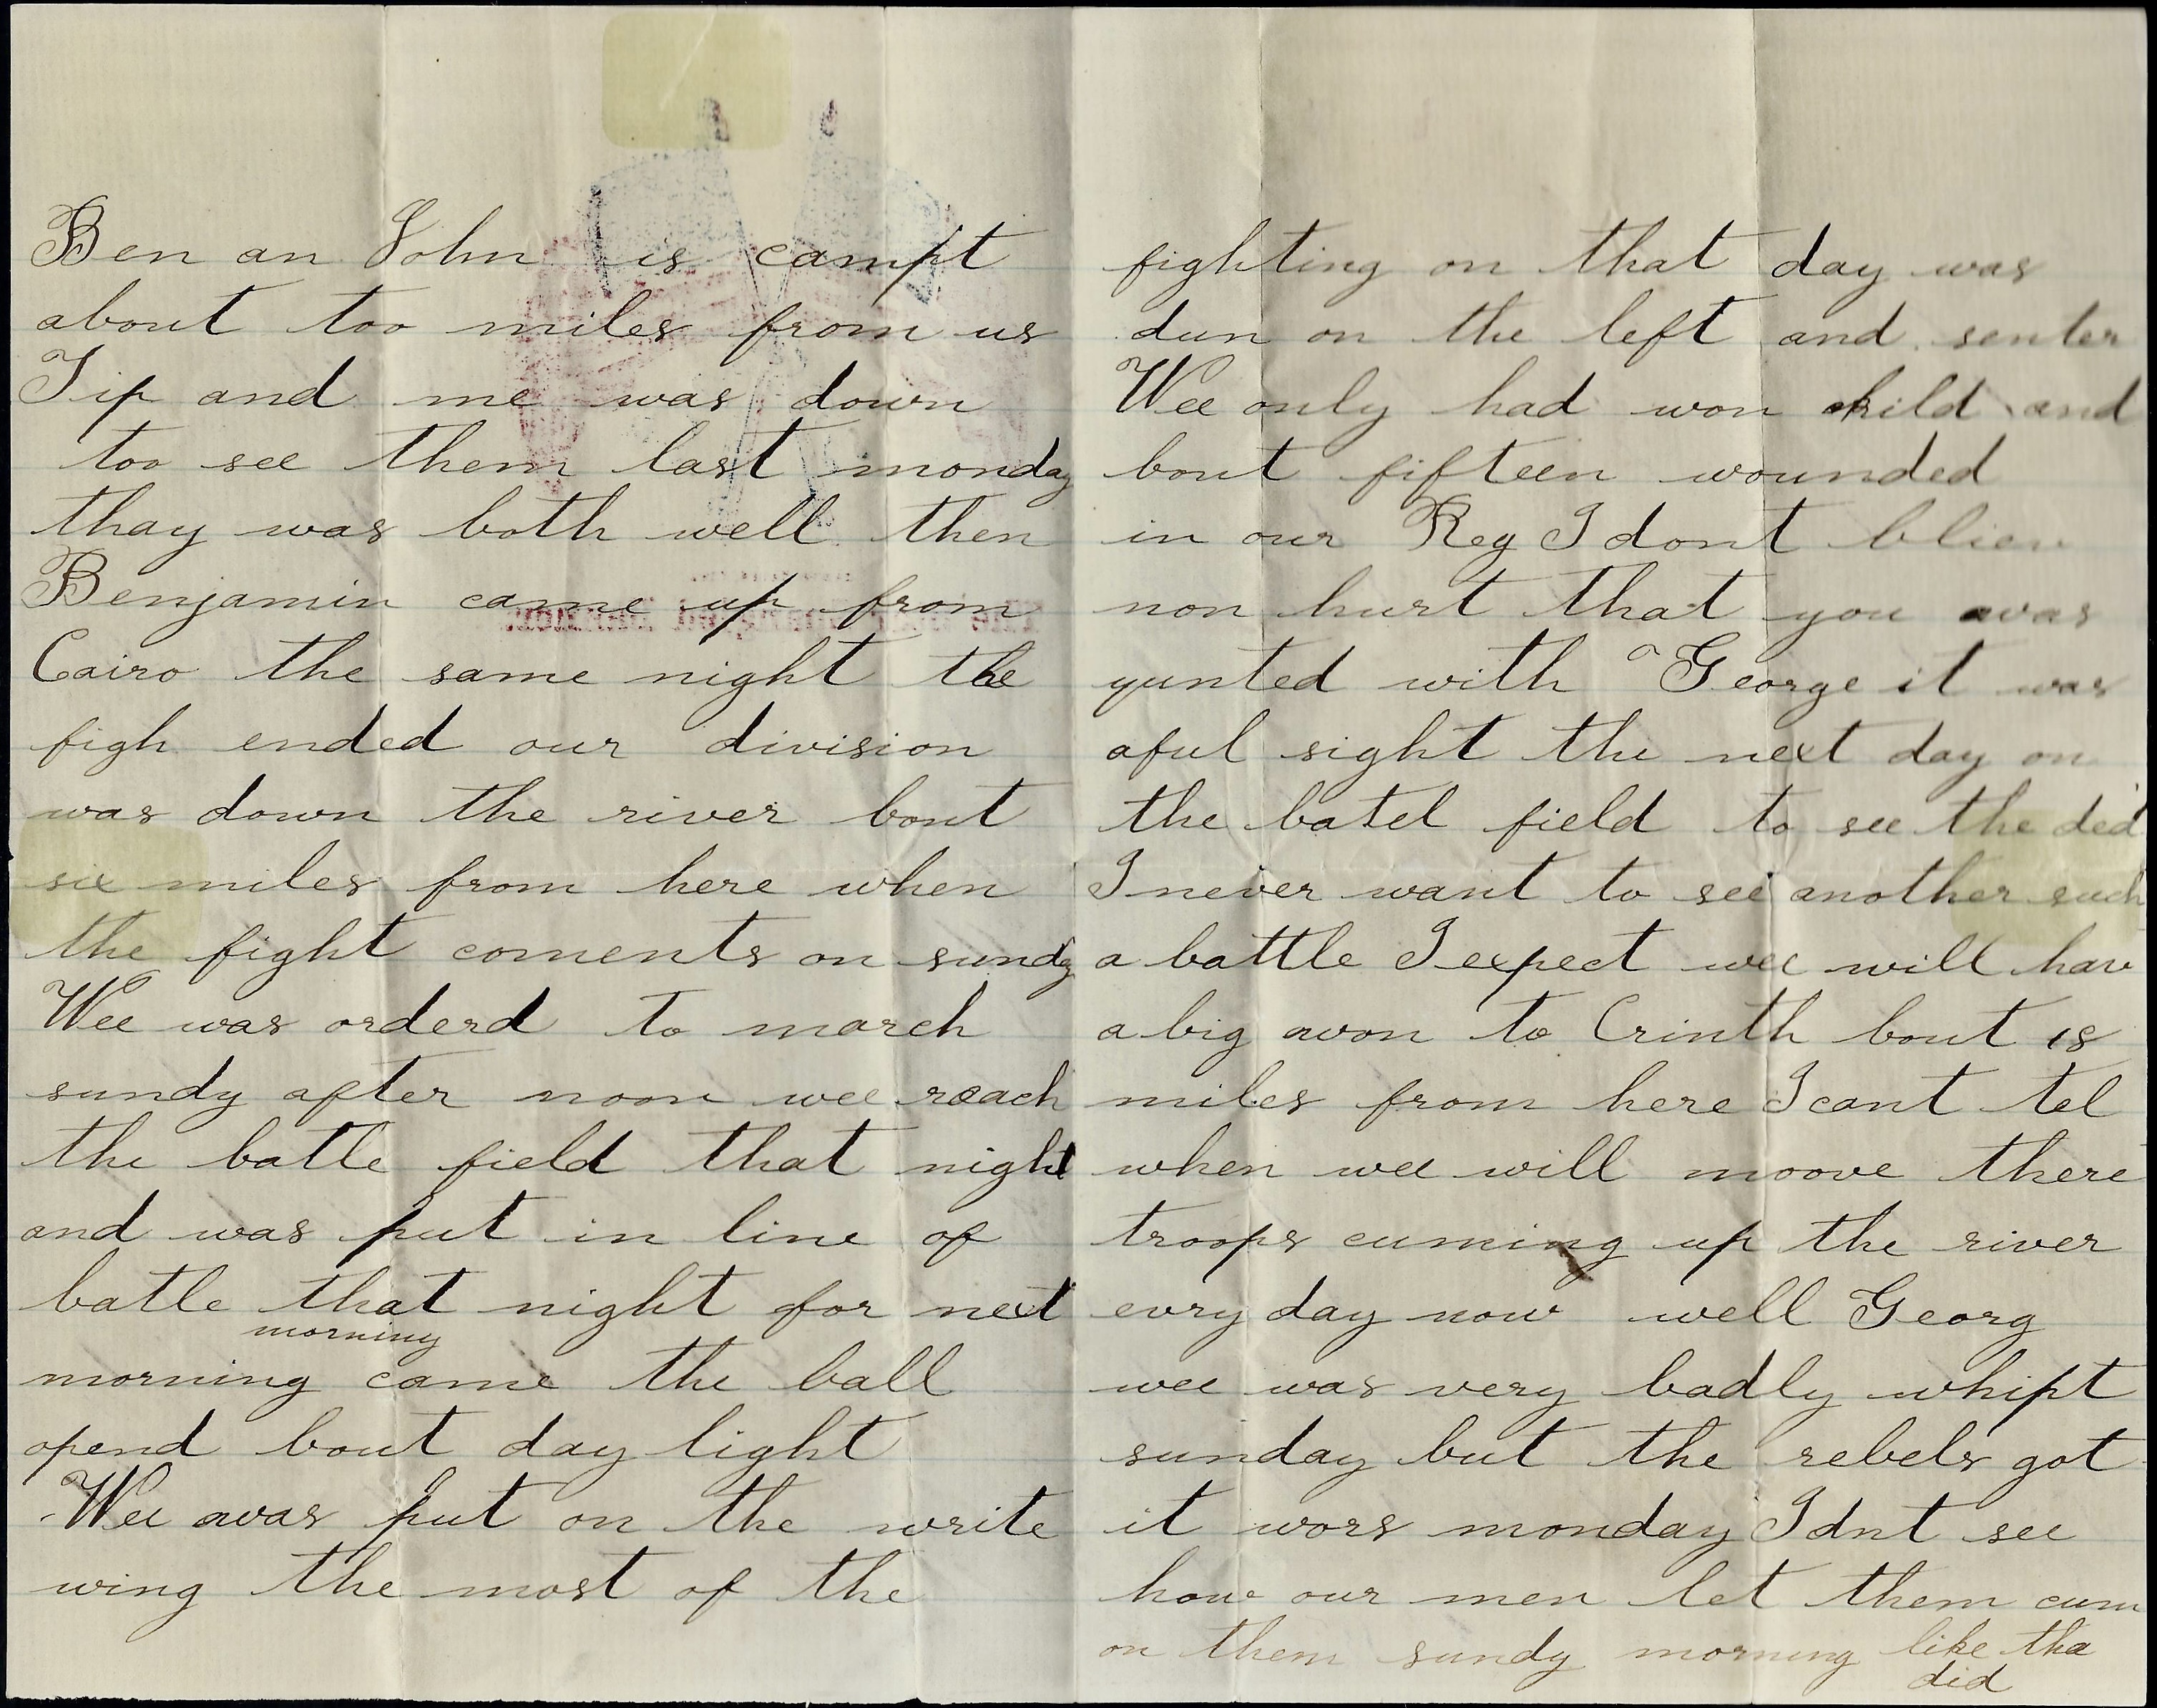 Ben an John is campt
about too miles from us
Tip and me was down
too see them last monday
thay was both well then
Benjamin came up from
Cairo the same night the
figh ended our division
was down the river bout
six miles from here when
the fight coments on sundy
Wee was orderd to march
sundy after noon wee reach
the batle field that night
and was put in line of
batle that night for next
morning
morning came the ball
opend bout day light
Wee was put on the write
wing the most of the
fighting on that day was
dun on the left and senter
Wee only had won kild and
bout fifteen wounded
in our Reg I dont bliev
non hurt that you was
qunted with George it was
aful sight the next day on
the batel field to see the ded
I never want to see another such
a battle I expect wee will hav
a big won to Crinth bout 18
miles from here I cant tel
when wee will moove there
troops cuming up the river
evry day now well Georg
wee was very badly whipt
sunday but the rebels got
it wors monday I dnt see
how our men let them cum
on them sundy morning like tha
did